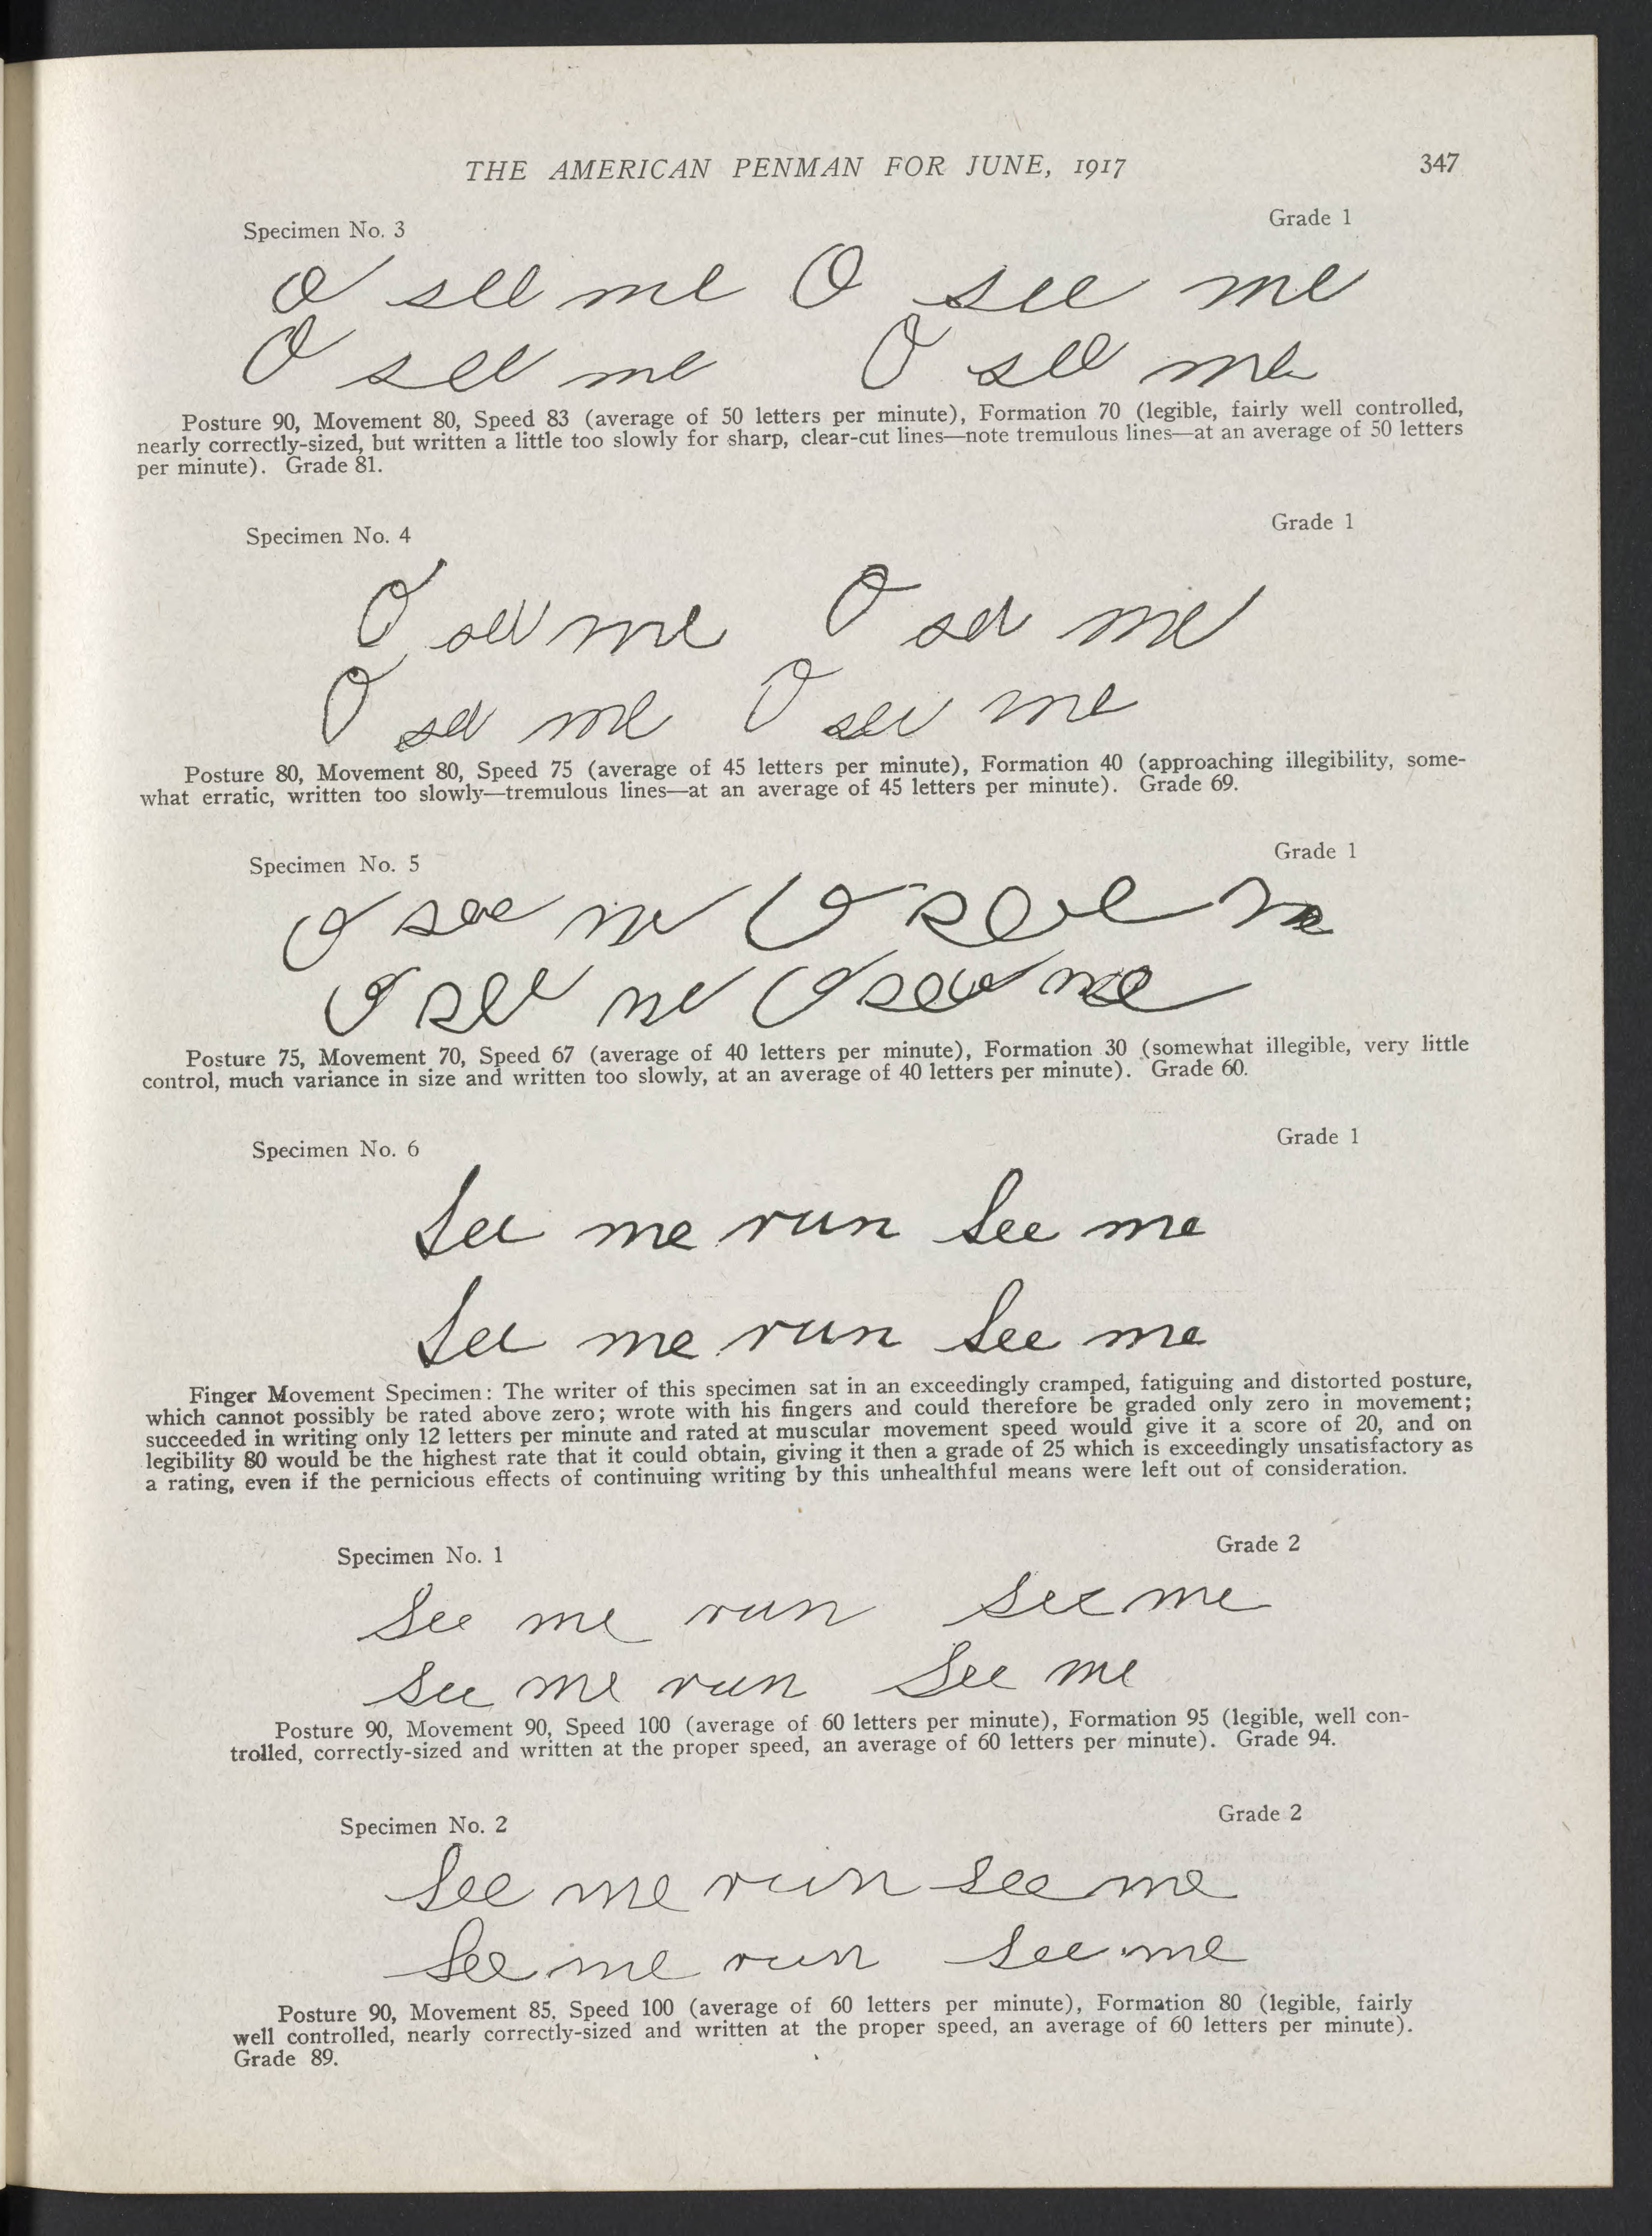 THE AMERICAN PENMAN FOR JUNE, 1917 347
Specimen No. 3 Grade 1
O see me O see me
O see me O see me
Posture 90, Movement 80, Speed 83 (average of 50 letters per minute), Formation 70 (legible, fairly well controlled,
nearly correctly-sized, but written a little too slowly for sharp, clear-cut lines—note tremulous lines—at an average of 50 letters
per minute). Grade 81.
Specimen No. 4 Grade 1
O see me O see me
O see me O see me
Posture 80, Movement 80, Speed 75 (average of 45 letters per minute), Formation 40 (approaching illegibility, some-
what erratic, written too slowly—tremulous lines—at an average of 45 letters per minute). Grade 69.
Specimen No. 5 Grade 1
O see me O see me
O see me O see me
Posture 75, Movement 70, Speed 67 (average of 40 letters per minute), Formation 30 (somewhat illegible, very little
control, much variance in size and written too slowly, at an average of 40 letters per minute). Grade 60.
Specimen No. 6 Grade 1
See me run See me
See me run See me
Finger Movement Specimen: The writer of this specimen sat in an exceedingly cramped, fatiguing and distorted posture,
which cannot possibly be rated above zero; wrote with his fingers and could therefore be graded only zero in movement;
succeeded in writing only 12 letters per minute and rated at muscular movement speed would give it a score of 20, and on
legibility 80 would be the highest rate that it could obtain, giving it then a grade of 25 which is exceedingly unsatisfactory as
a rating, even if the pernicious effects of continuing writing by this unhealthful means were left out of consideration.
Specimen No. 1 Grade 2
See me run See me
See me run See me
Posture 90, Movement 90, Speed 100 (average of 60 letters per minute), Formation 95 (legible, well con-
trolled, correctly-sized and written at the proper speed, an average of 60 letters per minute). Grade 94.
Specimen No. 2 Grade 2
See me run See me
See me run See me
Posture 90, Movement 85, Speed 100 (average of 60 letters per minute), Formation 80 (legible, fairly
well controlled, nearly correctly-sized and written at the proper speed, an average of 60 letters per minute).
Grade 89.